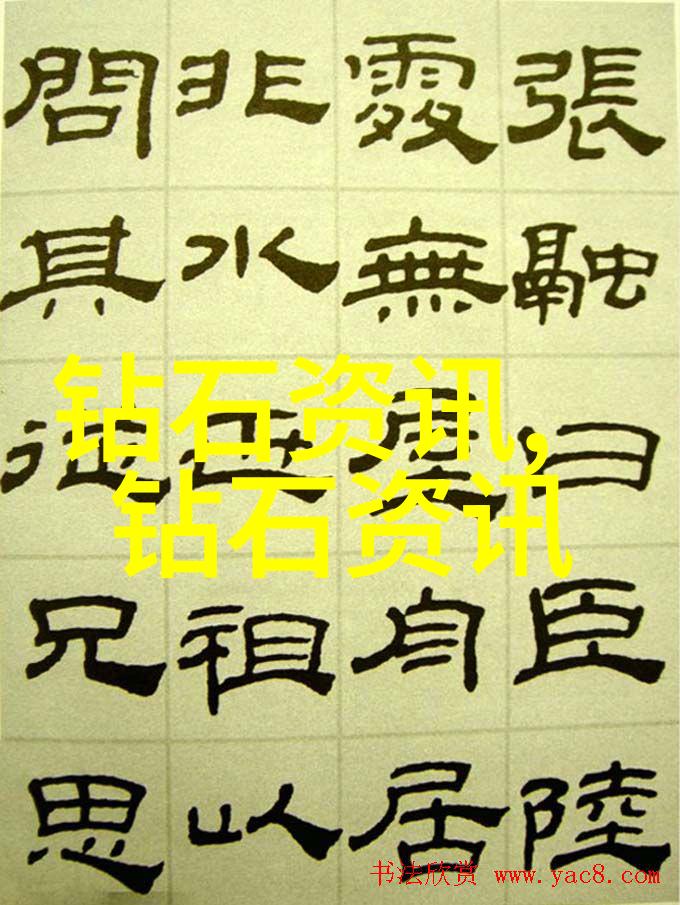 張融曰臣陸
處無屋舟居
非水世祖以
問其從兄思
钻石资讯,
钻石资讯
书法欣赏 www.yac8.com